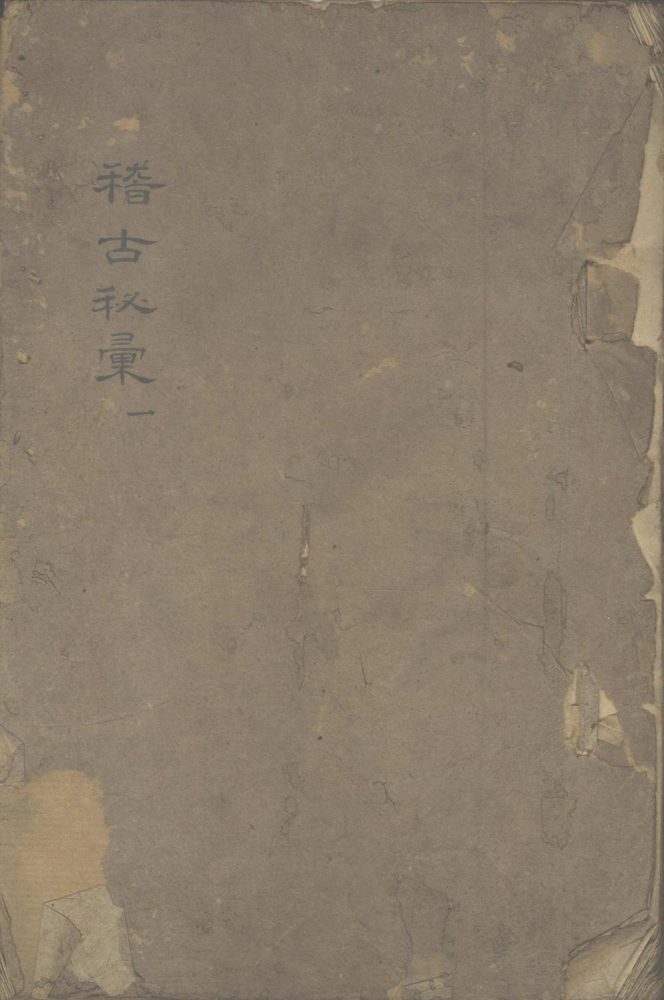 稽古秘彙 一